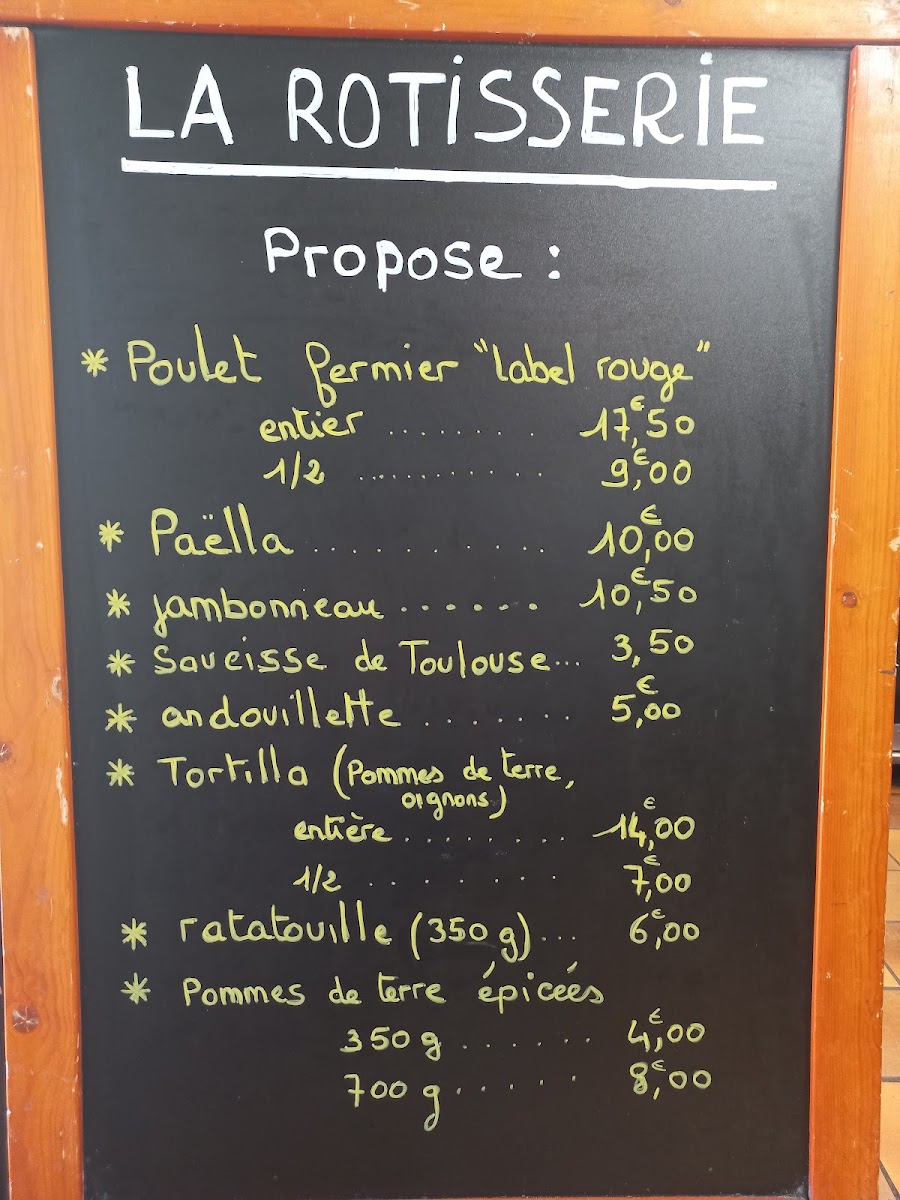 LA ROTISSERIE
Propose :
* Poulet fermier "label rouge"
entier ........ 17,€50
1/2 .......... 9,€00
* Paëlla ........... 10,€00
* jambonneau ...... 10,€50
* Saucisse de Toulouse... 3,50
* andouillette ....... 5,€00
* Tortilla (Pommes de terre,
oignons)
entière ......... 14,€00
1/2 ........ 7,€00
* ratatouille (350 g)... 6,€00
* Pommes de terre épicéés
350 g ...... 4,€00
700 g ...... 8,€00